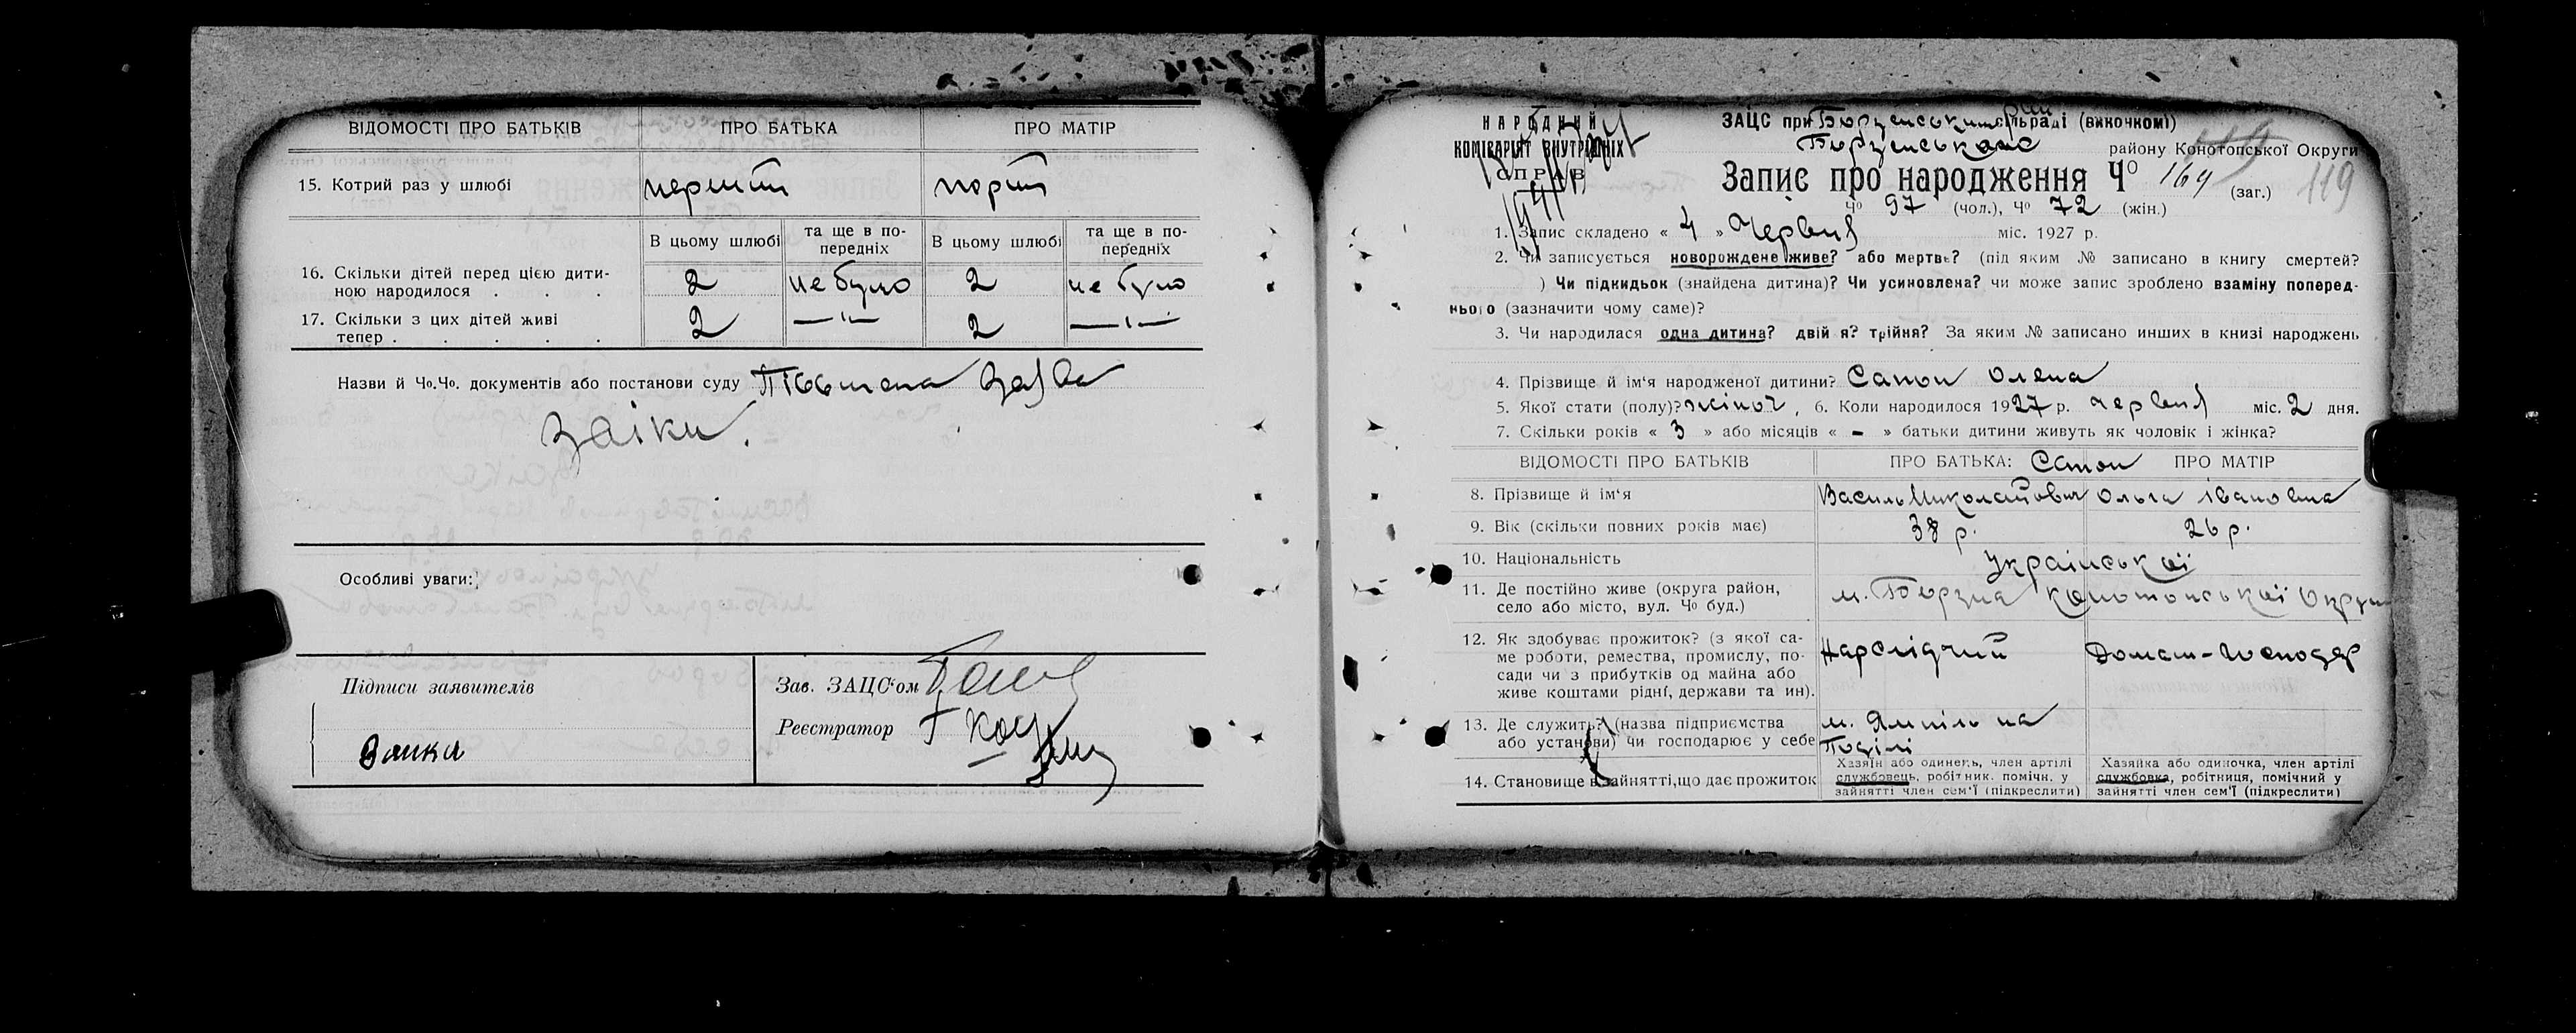 ВІДОМОСТІ ПРО БАТЬКІВ ПРО БАТЬКА ПРО МАТІР
15. Котрий раз у шлюбі
В цьому шлюбі та ще в по-передніх В цьому шлюбі та ще в по-передніх
16. Скільки дітей перед цією дити-
ною народилося . . . 2 не було 2 не було
17. Скільки з цих дітей живі
тепер . . . . . 2 —"— 2 —"—
Назви й Чо.Чо. документів або постанови суду заява
Заіки.
Особливі уваги:
Підписи заявителів
Заика
Зав. ЗАЦС'ом
Реєстратор
НАРОДНИЙ
КОМІСАРІЯТ ВНУТРІШНІХ
СПРАВ
ЗАЦС при Борзенській сільраді (викочком)
Борзенського району Конотопської Округи
119
Запис про народження Чо 169 (заг.) 119
Чо 97 (чол.), Чо 72 (жін.)
1. Запис складено « 4 » Червня міс. 1927 р.
2. Чи записується новорождене живе? або мертве? (під яким № записано в книгу смертей?
) Чи підкидьок (знайдена дитина)? Чи усиновлена? чи може запис зроблено взаміну поперед-
нього (зазначити чому саме)?
3. Чи народилася одна дитина? двійня? трійня? За яким № записано инших в книзі народжень
4. Прізвище й ім'я народженої дитини? Сапон Олена
5. Якої стати (полу)? жіноч, 6. Коли народилося 1927 р. червня міс. 2 дня.
7. Скільки років « 3 » або місяців « - » батьки дитини живуть як чоловік і жінка?
ВІДОМОСТІ ПРО БАТЬКІВ ПРО БАТЬКА: Сапон ПРО МАТІР
8. Прізвище й ім'я Василь Миколайович Ольга Івановна
9. Вік (скільки повних років має) 38 р. 26 р.
10. Національність Української
11. Де постійно живе (округа район,
село або місто, вул. Чо буд.) м. Борзна Конотопської Округи
12. Як здобуває прожиток? (з якої са-
ме роботи, ремества, промислу, по-
сади чи з прибутків од майна або
живе коштами рідні, держави та ин). Нарслідчий Домаш-господар
13. Де служить? (назва підприємства
або установи) чи господарює у себе м. Ямпіль на
Поділі
14. Становище в зайнятті, що дає прожиток
Хазяїн або одинець, член артілі
службовець, робітник. помічн. у
зайнятті член сем'ї (підкреслити)
Хазяйка або одиночка, член артілі
службовка, робітниця, помічний у
зайнятті член сем'ї (підкреслити)